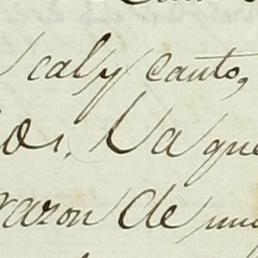 cal y canto,
La que
razon de